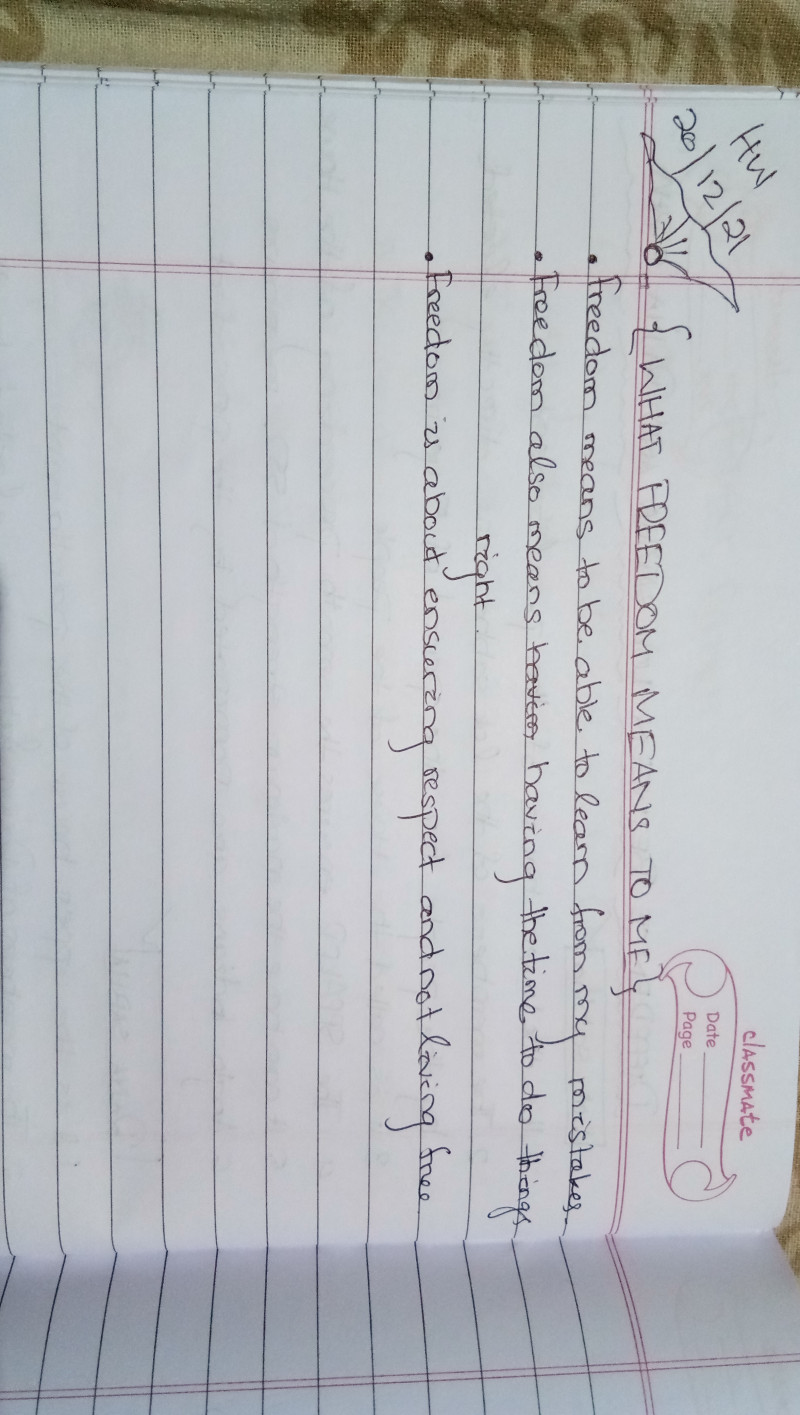 HW
20/12/21
classmate
Date
Page
{WHAT FREEDOM MEANS TO ME}
• Freedom means to be able to learn from my mistakes.
• Freedom also means having the time to do things
right.
• Freedom is about ensuring respect and not living free.